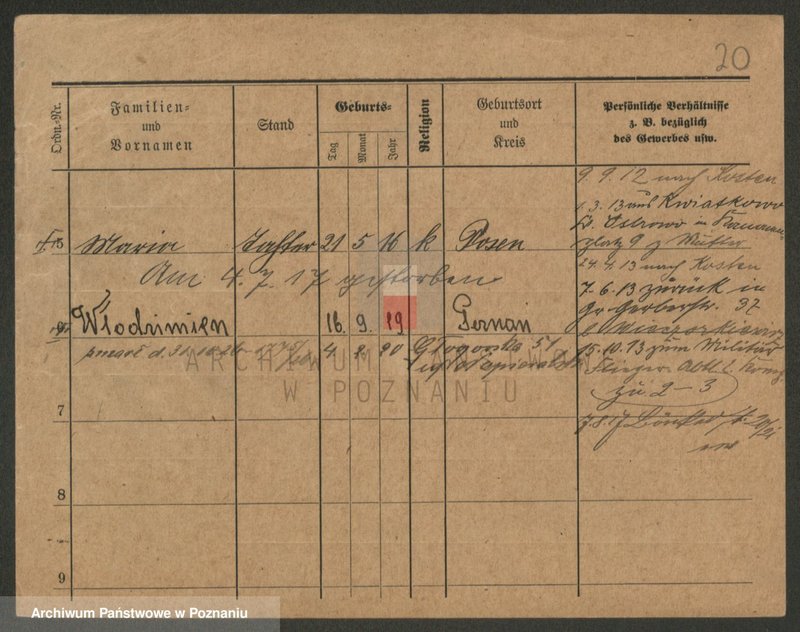 20
Ordn.-Nr.
Familien-
und
Vornamen
Stand
Geburts-
Tag
Monat
Jahr
Religion
Geburtsort
und
Kreis
Persönliche Verhältnisse
z. B. bezüglich
des Gewerbes usw.
9. 9. 12 nach Kosten
1. 3. 13 aus Kwiatkowo
Kr. Ostrowo in
platz 9 z Mutter
24. 4. 13 nach Kosten
7. 6. 13 zurück in
Gr. Gerberstr. 37
15. 10. 13 zum Militär
Flieger Abtl.
zu 2-3
7. 8. 17
5 Maria Tochter 21 5 16 k Posen
Am 4. 7. 17 gestorben
Włodzimierz 16. 9. 19 Poznań
4. 2. 20 Głogowska 51
7
8
9
ARCHIWUM PAŃSTWOWE
W POZNANIU
Archiwum Państwowe w Poznaniu